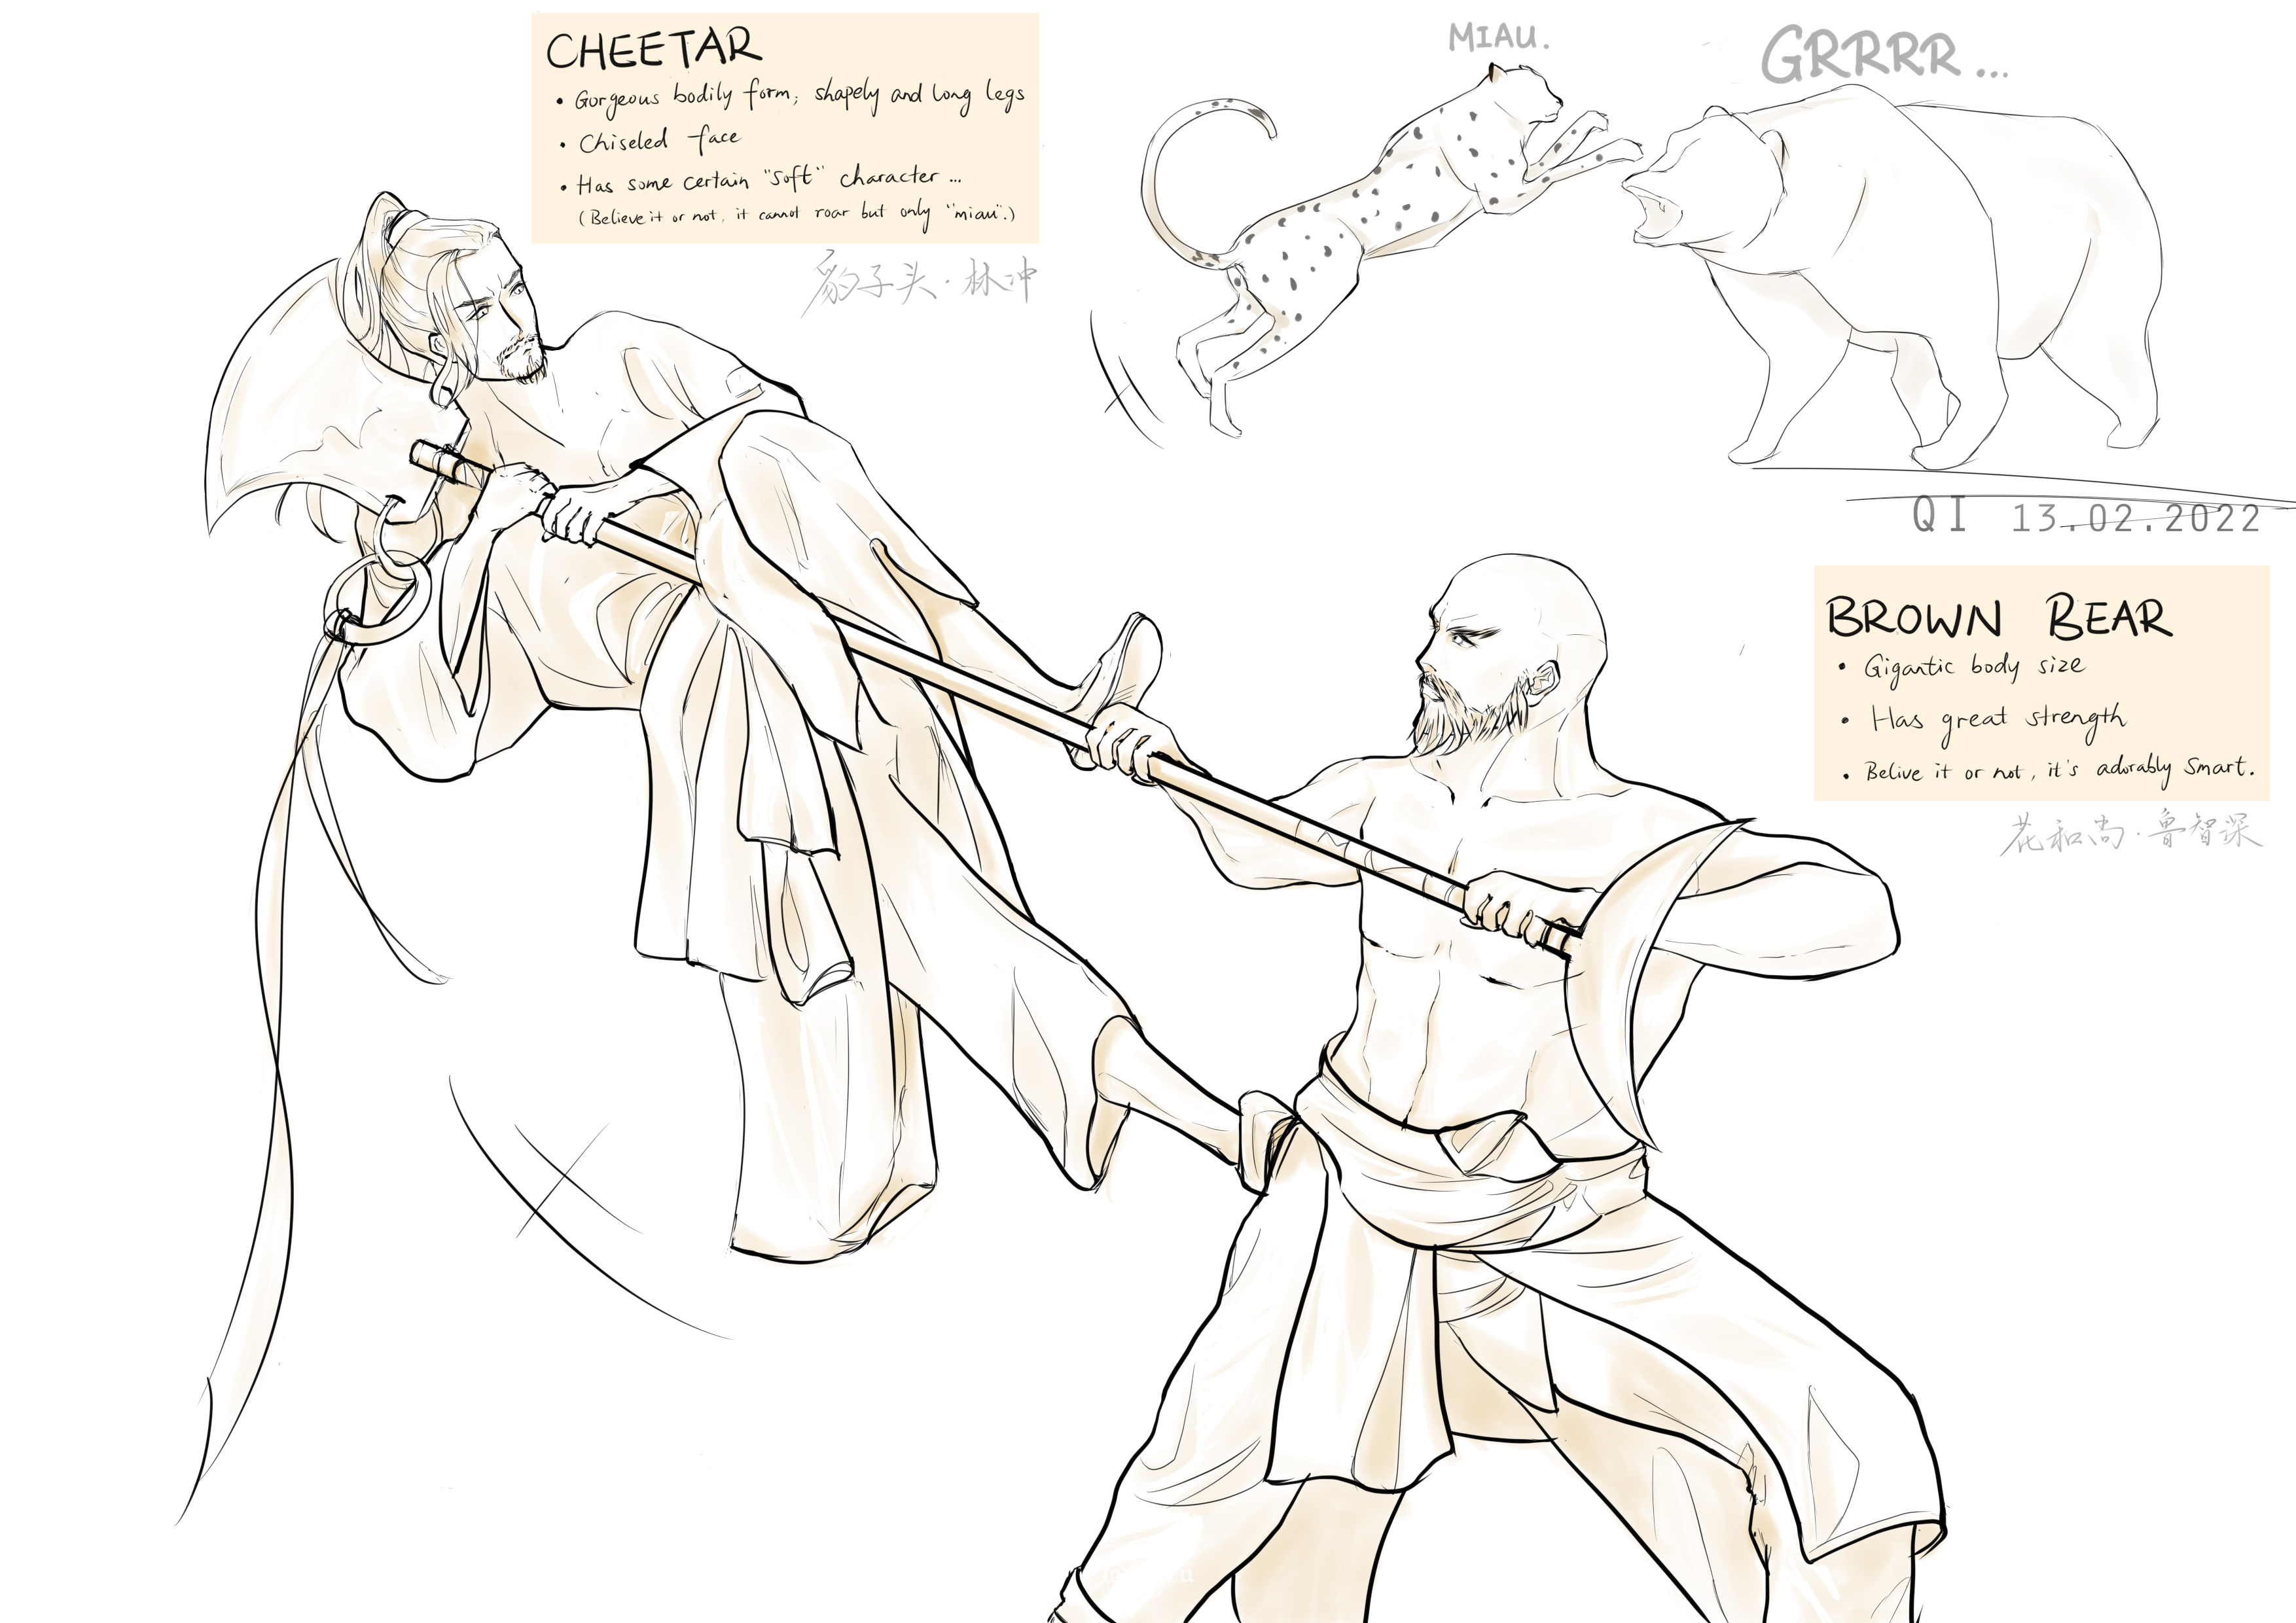 CHEETAR
• Gorgeous bodily form; shapely and long legs
• Chiseled face
• Has some certain "soft" character ...
(Believe it or not, it cannot roar but only "miau".)
豹子头·林冲
MIAU.
GRRRR...
QI 13.02.2022
BROWN BEAR
• Gigantic body size
• Has great strength
• Belive it or not, it's adorably smart.
花和尚·鲁智深